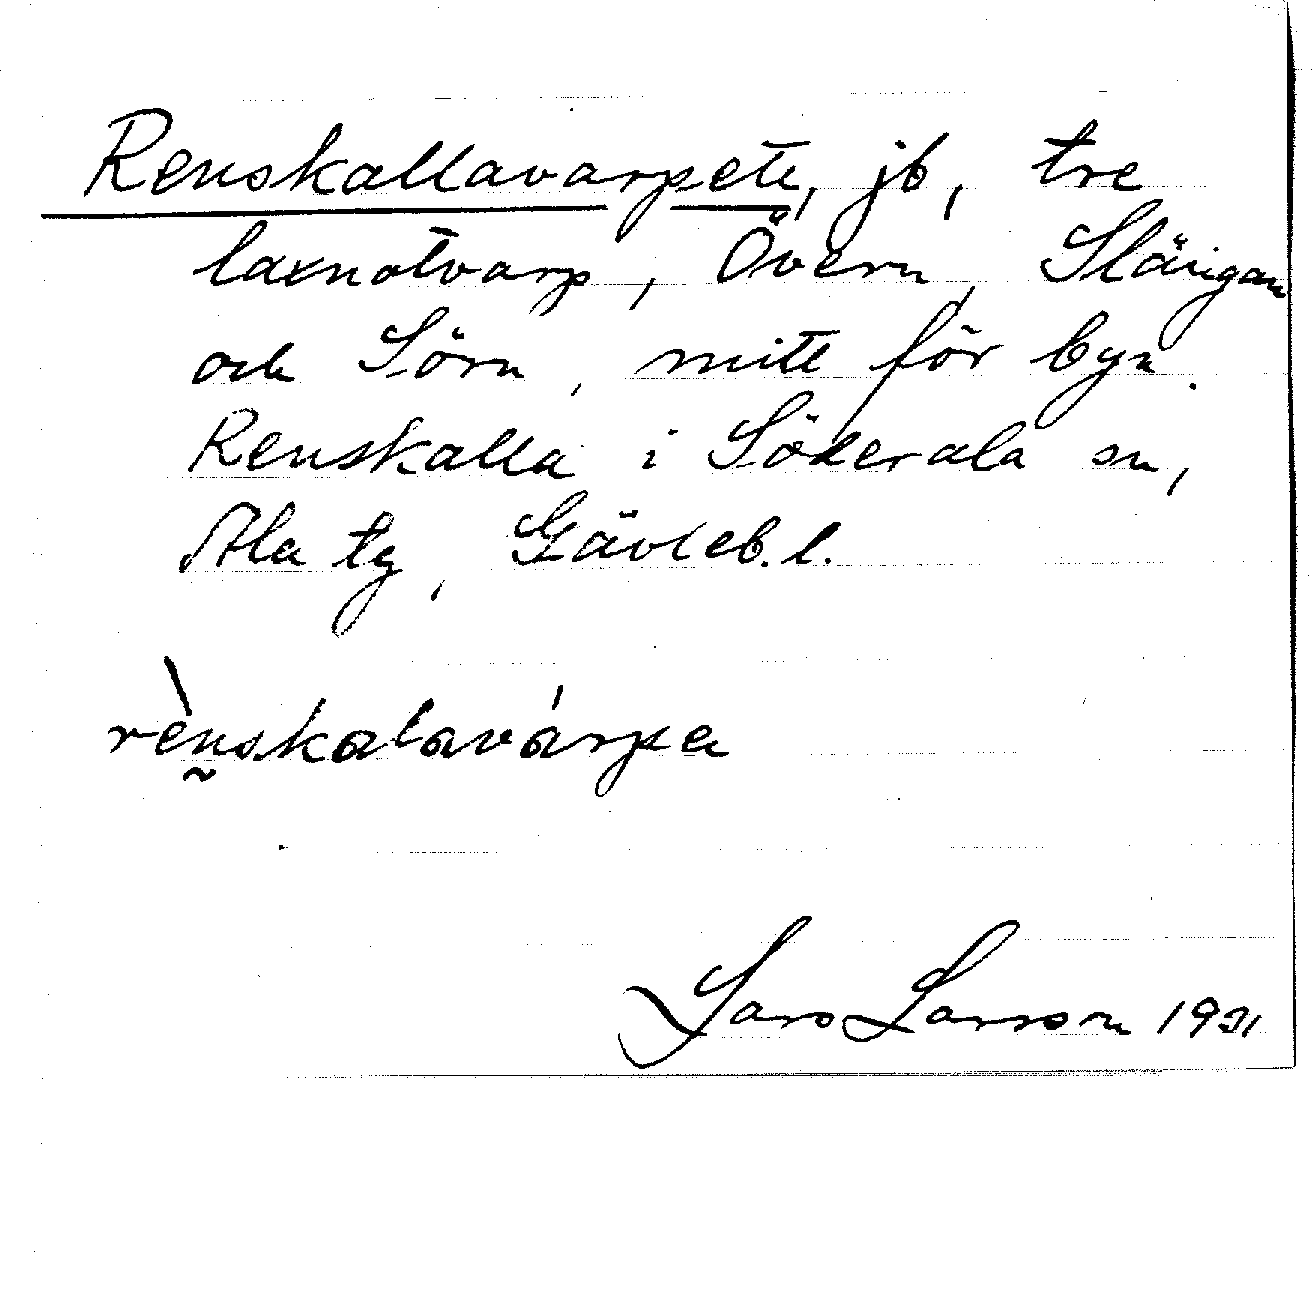 Renskallavarpett, jb, tre
laxnotvarp, Övern, Slängan
och Sörn, mitt för byn
Renskalla i Söderala sn,
Ala tg, Gävleb. l.
rènskalavárpa
Lars Larsson 1931